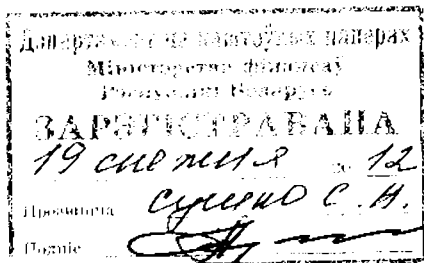 Дэпартамент па каштоўных паперах
Міністэрства фінансаў
Рэспублікі Беларусь
ЗАРЭГІСТРАВАНА
19 снежня 12
Прозвішча
Подпіс